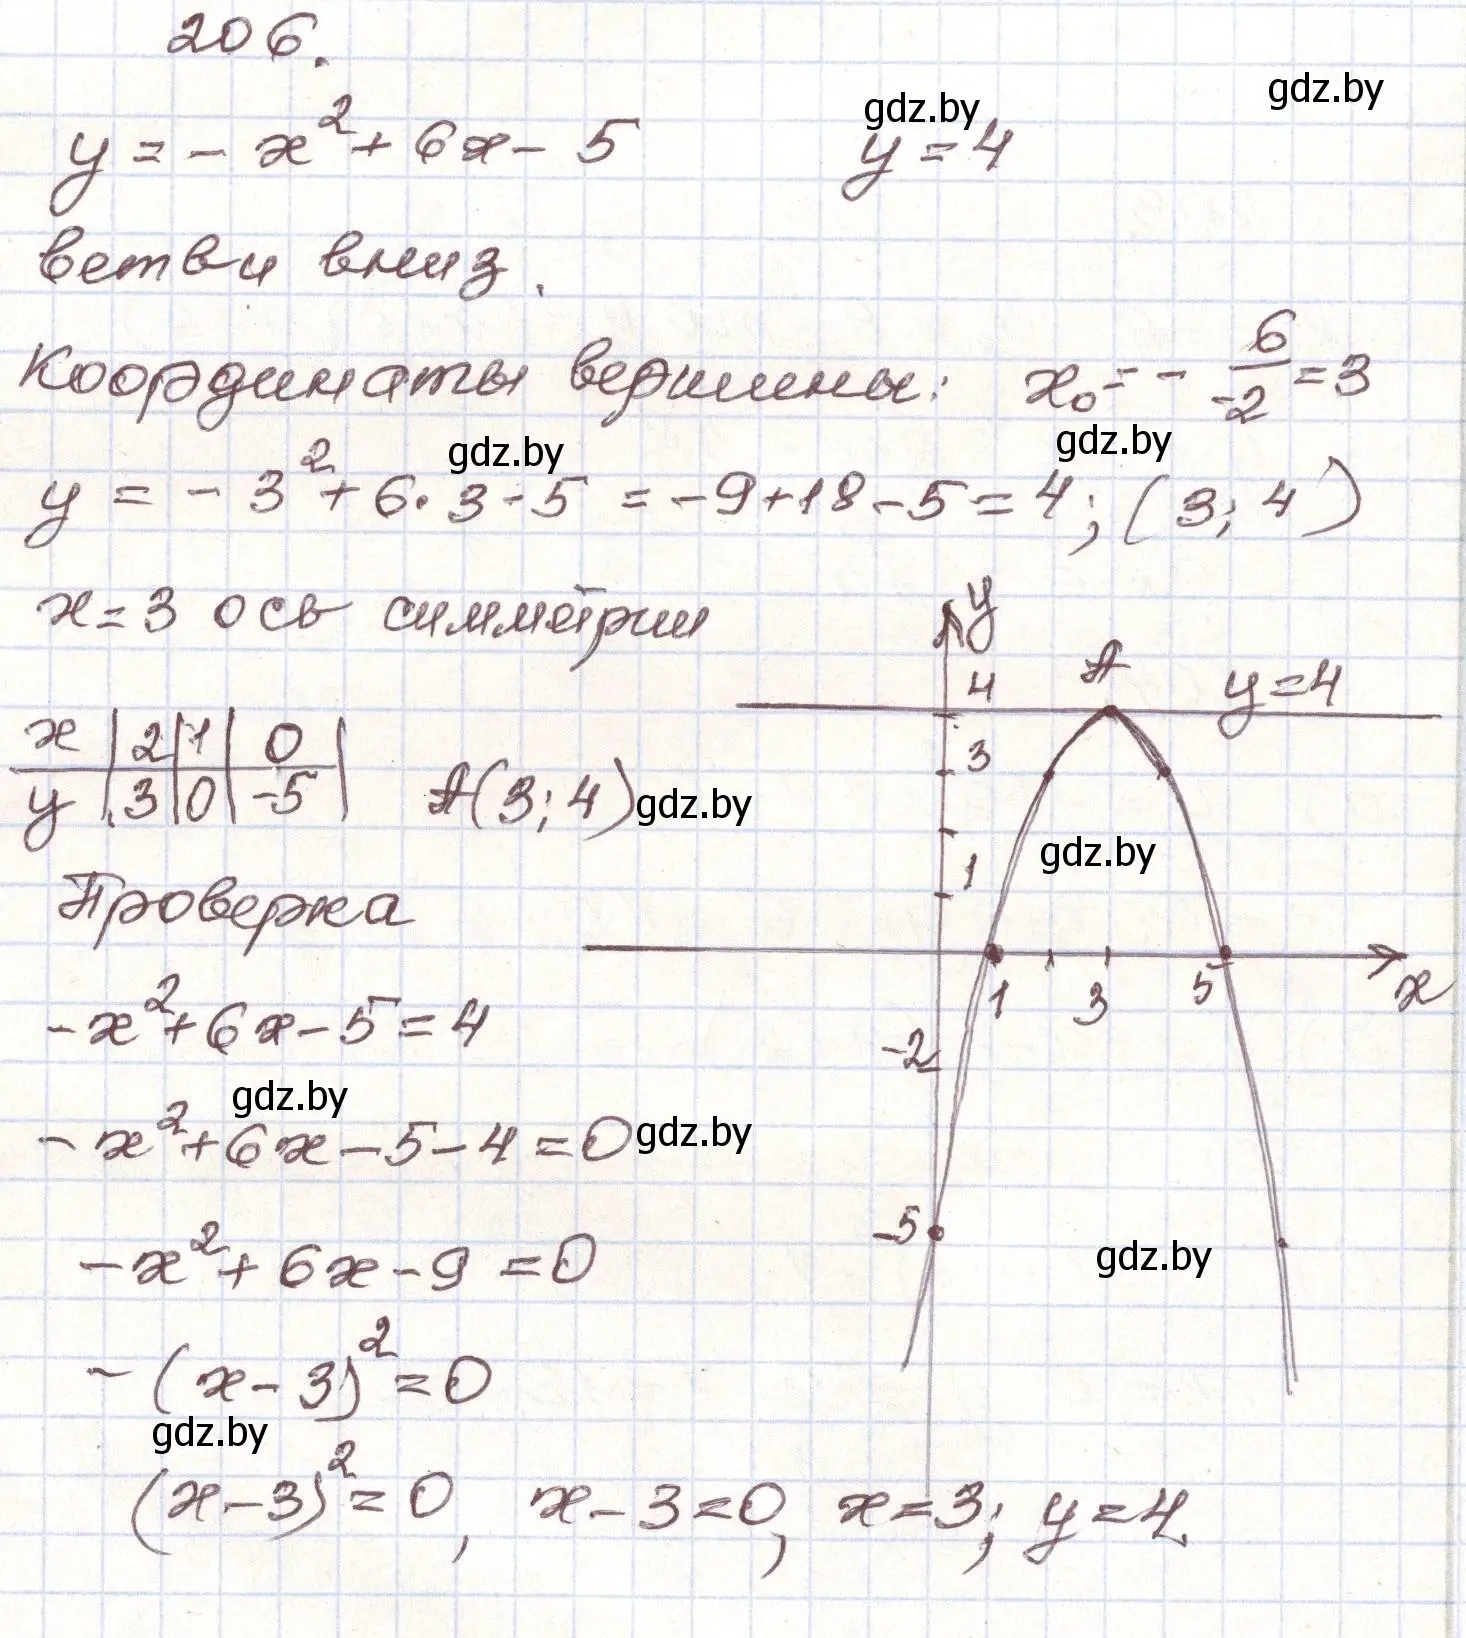 206.
gdz.by
gdz.by
y = - x² + 6x - 5      y = 4
ветви вниз.
Координаты вершины: x₀ = - 6/-2 = 3
gdz.by
gdz.by
y = - 3² + 6 · 3 - 5 = -9 + 18 - 5 = 4; (3; 4)
x = 3 ось симметрии
x | 2 | 1 | 0 |
y | 3 | 0 | -5 |
A(3; 4)
gdz.by
Проверка
-x² + 6x - 5 = 4
gdz.by
- x² + 6x - 5 - 4 = 0
gdz.by
- x² + 6x - 9 = 0
- (x - 3)² = 0
gdz.by
(x - 3)² = 0, x - 3 = 0, x = 3; y = 4.
y
4
A
y = 4
3
gdz.by
1
1
3
5
x
-2
-5
gdz.by